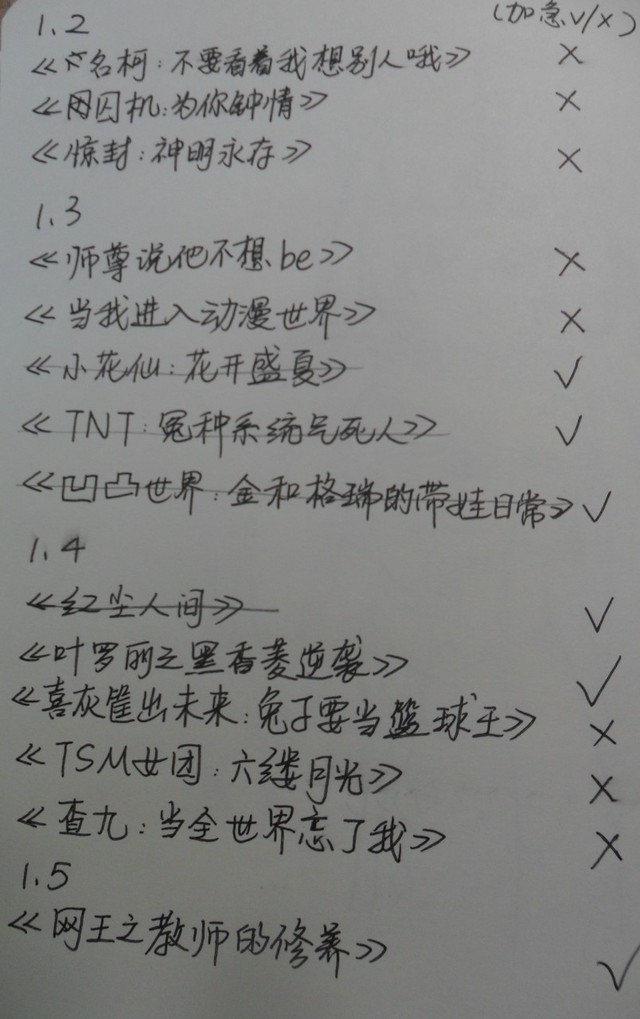 1.2 (加急√/×)
《名柯:不要看着我想别人哦》 ×
《网囚机:为你钟情》 ×
《惊封:神明永存》 ×
1.3
《师尊说他不想be》 ×
《当我进入动漫世界》 ×
《小花仙:花开盛夏》 √
《TNT:冤种系统气死人》 √
《凹凸世界:金和格瑞的带娃日常》 √
1.4
《红尘人间》 √
《叶罗丽之黑香菱逆袭》 √
《喜灰筐出未来:兔子要当篮球王》 ×
《TSM女团:六缕月光》 ×
《查九:当全世界忘了我》 ×
1.5
《网王之教师的修养》 √